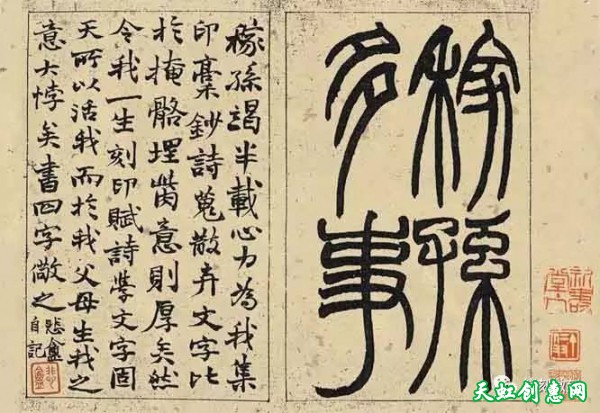 稼孫
多事
稼孫竭半載心力為我集
印稾鈔詩蒐散弃文字比
於掩骼埋胔意則厚矣然
令我一生刻印賦詩學文字固
天所以活我而於我父母生我之
意大悖矣書四字儆之
悲盦
自記
天虹创惠网